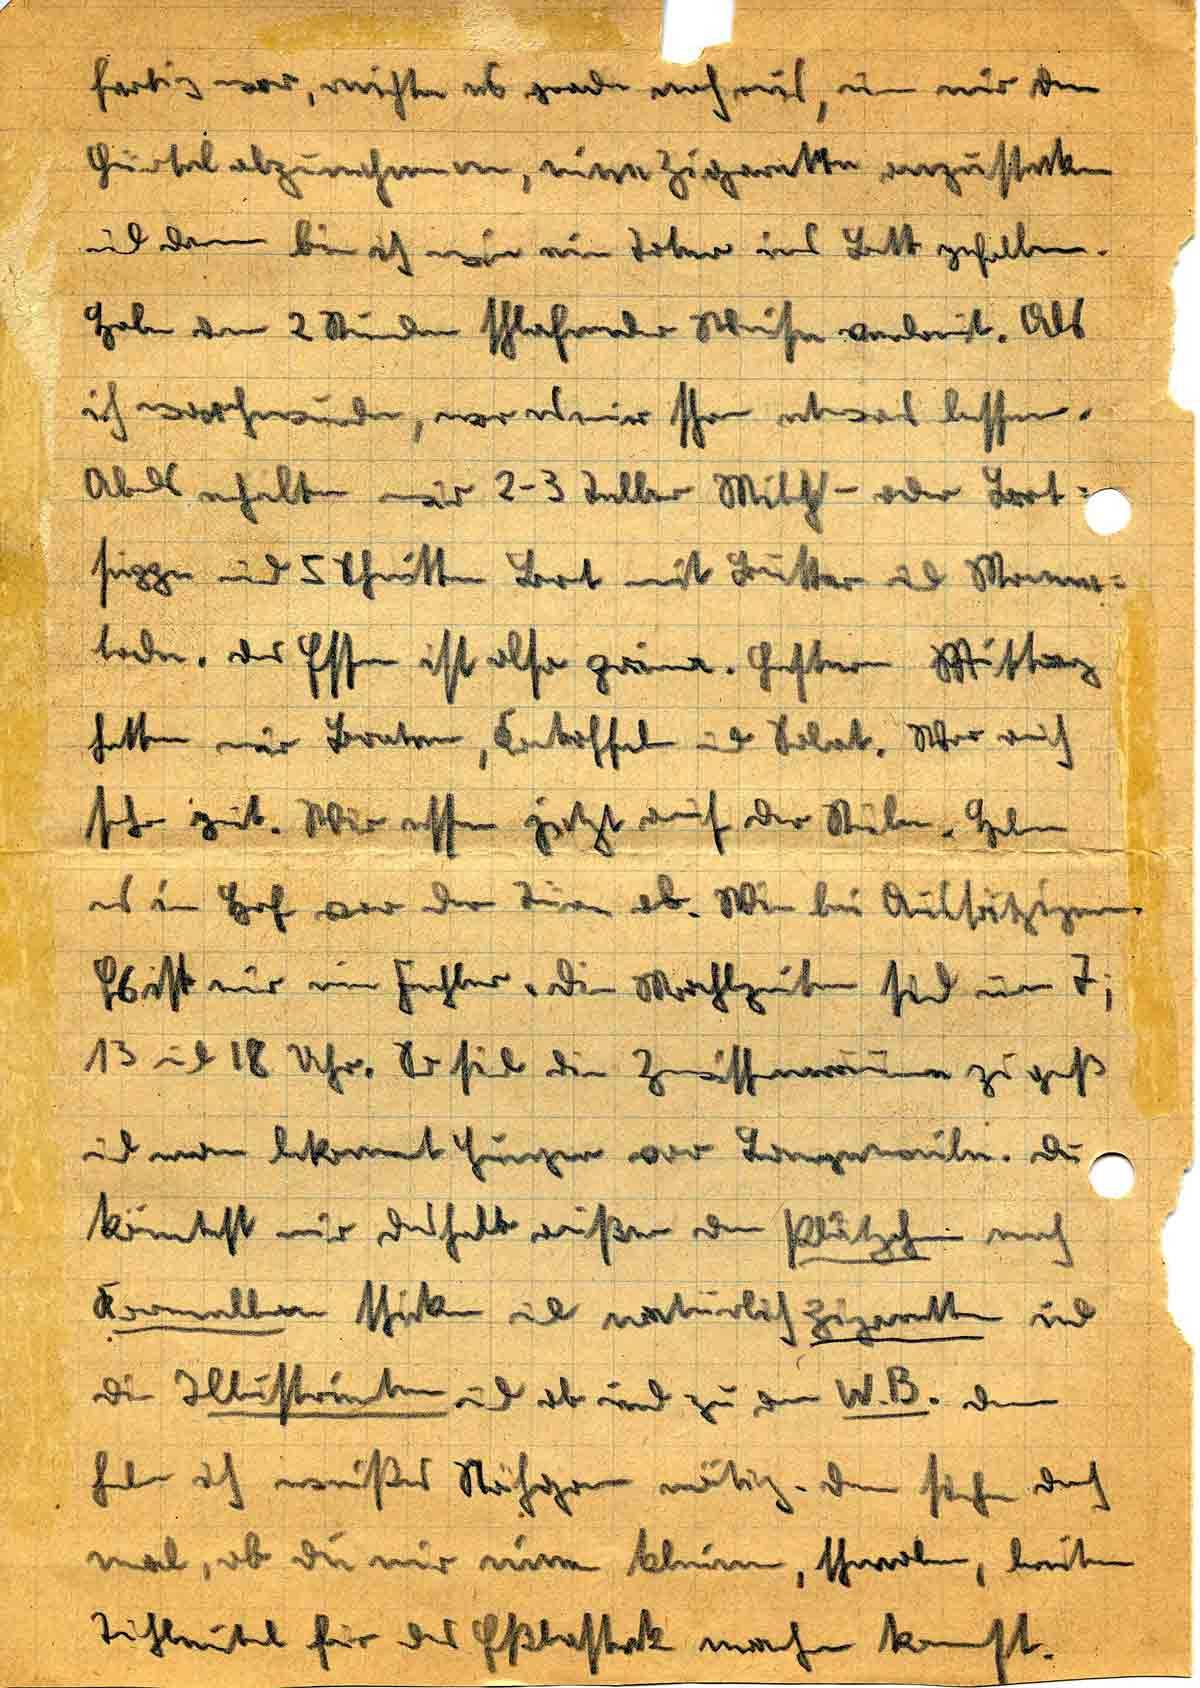 fertig war, reichte es grade noch aus, um mir den
Gürtel abzunehmen, eine Zigarette anzustecken
und dann bin ich wie ein Toter ins Bett gefallen.
Habe dann 2 Stunden schlafender Weise verbracht. Als
ich wach wurde, war es mir schon etwas besser.
Abends erhalten wir 2-3 Teller Milch- oder Brot=
suppe und 5 Schnitten Brot mit Butter und Marme=
lade. Das Essen ist also prima. Gestern Mittag
hatten wir Braten, Kartoffeln und Salat. War auch
sehr gut. Wir essen jetzt auf der Stube. Holen
es im Hof vor der Türe ab. Wie bei Aussätzigen.
Es ist nur ein Fehler. Die Mahlzeiten sind um 7;
13 und 18 Uhr. Da sind die Zwischenräume zu groß
und man bekommt Hunger vor Langeweile. Du
könntest mir deshalb außer den Plätzchen noch
Karamellen schicken und natürlich Zigaretten und
die Illustrierten und ab und zu den W.B. Dann
habe ich weißes Nähgarn nötig. Dann siehe doch
mal, ob Du mir einen kleinen, schmalen, breiten
Tuchbeutel für das Essbesteck machen kannst.